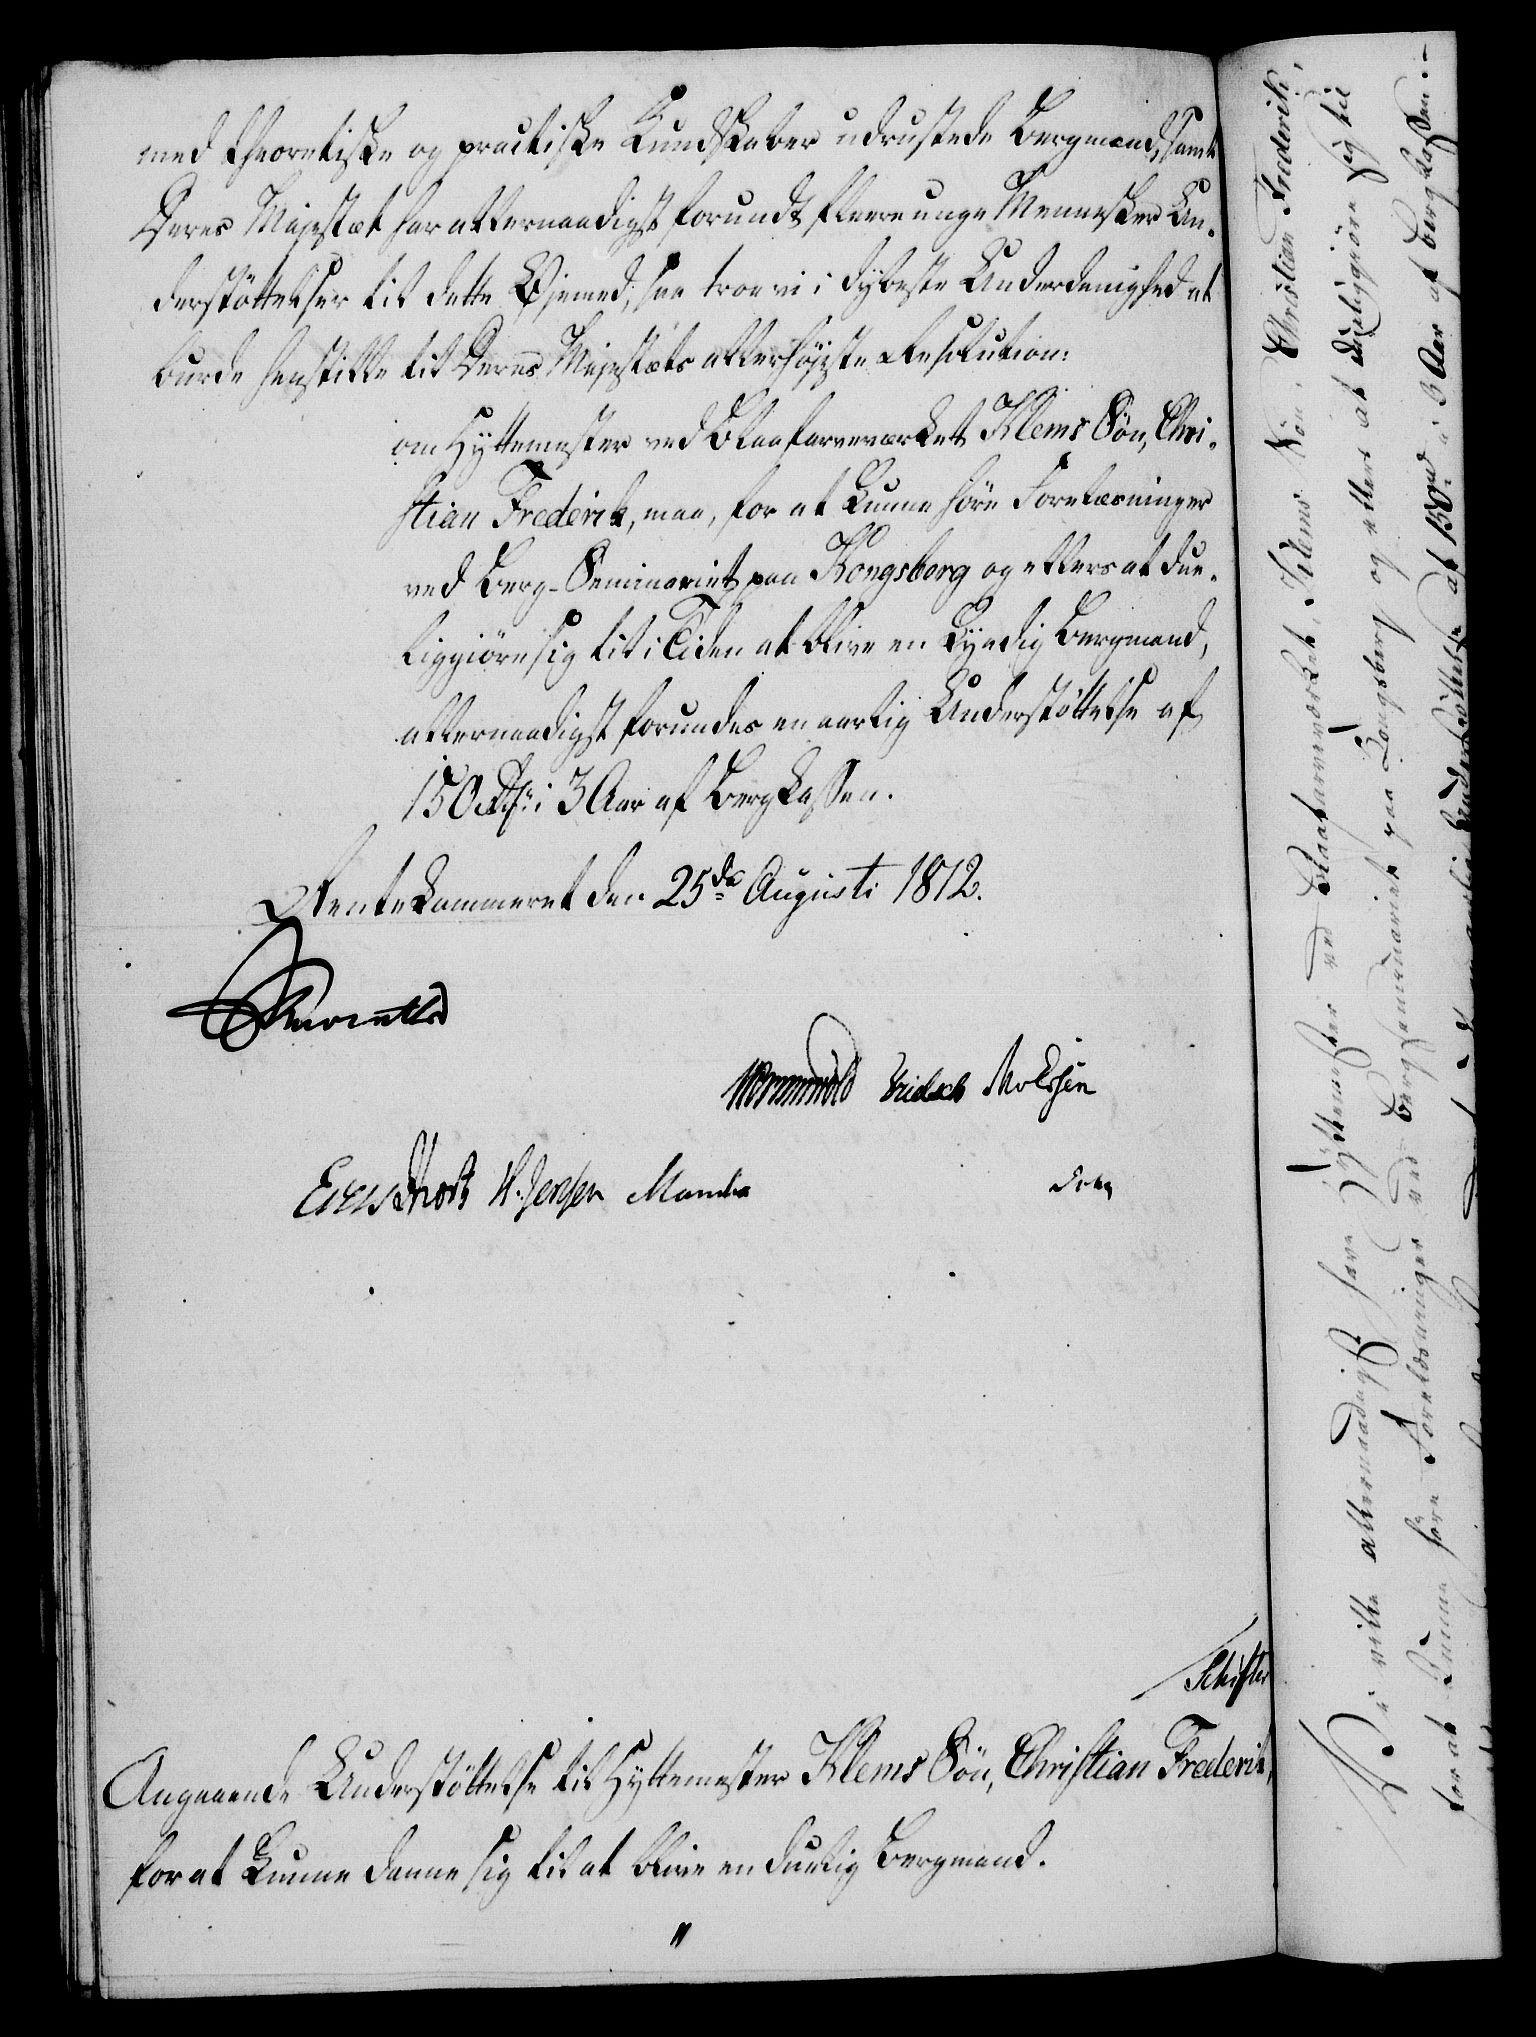 med theoretiske og practiske Kundskaber udrustede Bergmænd, samt
Deres Majestæt har allernaadigst forundt fleere unge Mennesker Un-
derstöttelser til dette Øiemed; saa troe vi i dybeste Underdanighed at
burde henstille til Deres Majestæts allerhöjeste Resolution:
om Hyttemester ved Blaafarveværket Klems Sön, Chri-
stian Frederik, maa, for at kunne höre Forelæsninger
ved Berg-Seminariet paa Kongsberg og ellers at due-
liggiöre sig til i Tiden at blive en kyndig Bergmand,
allernaadigst forundes en aarlig Understöttelse af
150 Rd. i 3 Aar af Bergkassen.
Rentekammeret den 25de Augusti 1812.
Wormskiold Knudsen
H. Jensen
Schifter
Angaaende Understöttelse til Hyttemester Klems Sön, Christian Frederik,
for at kunne danne sig til at blive en duelig Bergmand.
"
Vi ville allernaadigst have Hyttemester ved Blaafarveværket, Klems Sön, Christian Frederik,
for at kunne höre Forelæsninger ved Bergseminariet paa Kongsberg og ellers at dueliggiöre sig til
en aarlig Understöttelse af 150 rd i 3 Aar af Bergkassen.